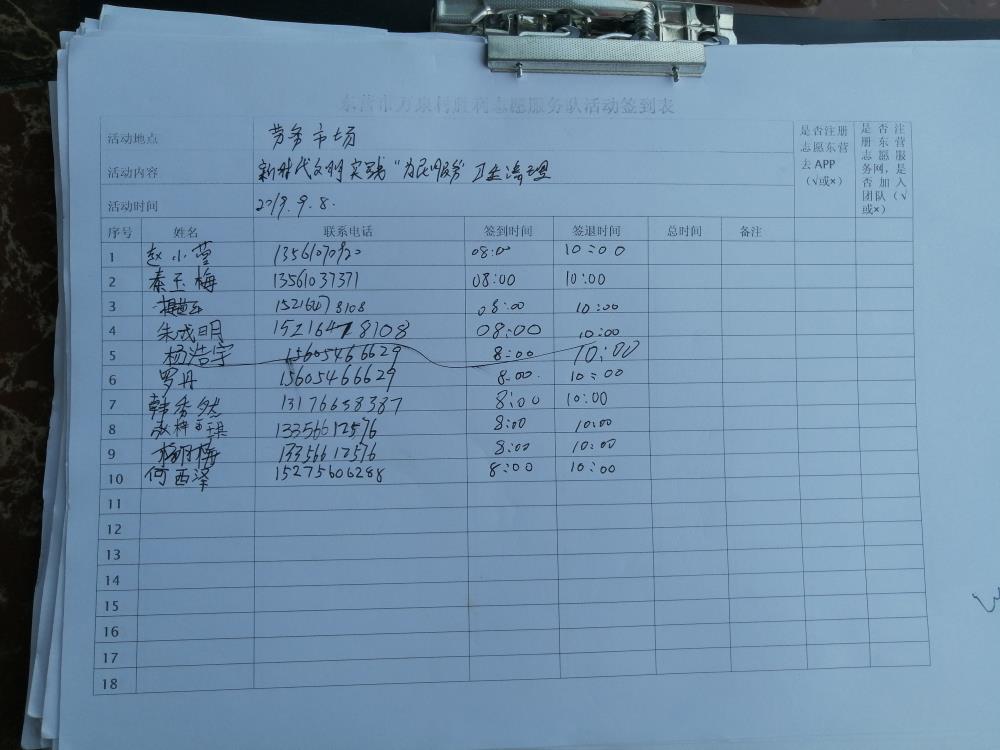 东营市万泉村胜利志愿服务队活动签到表
活动地点 劳务市场
活动内容 新时代文明实践"为民服务" 卫生清理
活动时间 2019.9.8.
是否注册志愿东营去APP（√或×）
是否注册东营志愿服务网，是否加入团队（√或×）
序号 姓名 联系电话 签到时间 签退时间 总时间 备注
1 赵小莹 13561070920 08:00 10:00
2 秦玉梅 13561037371 08:00 10:00
3 15216478108 08:00 10:00
4 朱成明 15216478108 08:00 10:00
5 杨浩宇 15605466629 8:00 10:00
6 罗丹 15605466629 8:00. 10:00
7 韩秀然 13176658387 8:00 10:00
8 13356612576 8:00 10:00
9 13356612576 8:00 10:00
10 何西泽 15275606288 8:00 10:00
11
12
13
14
15
16
17
18